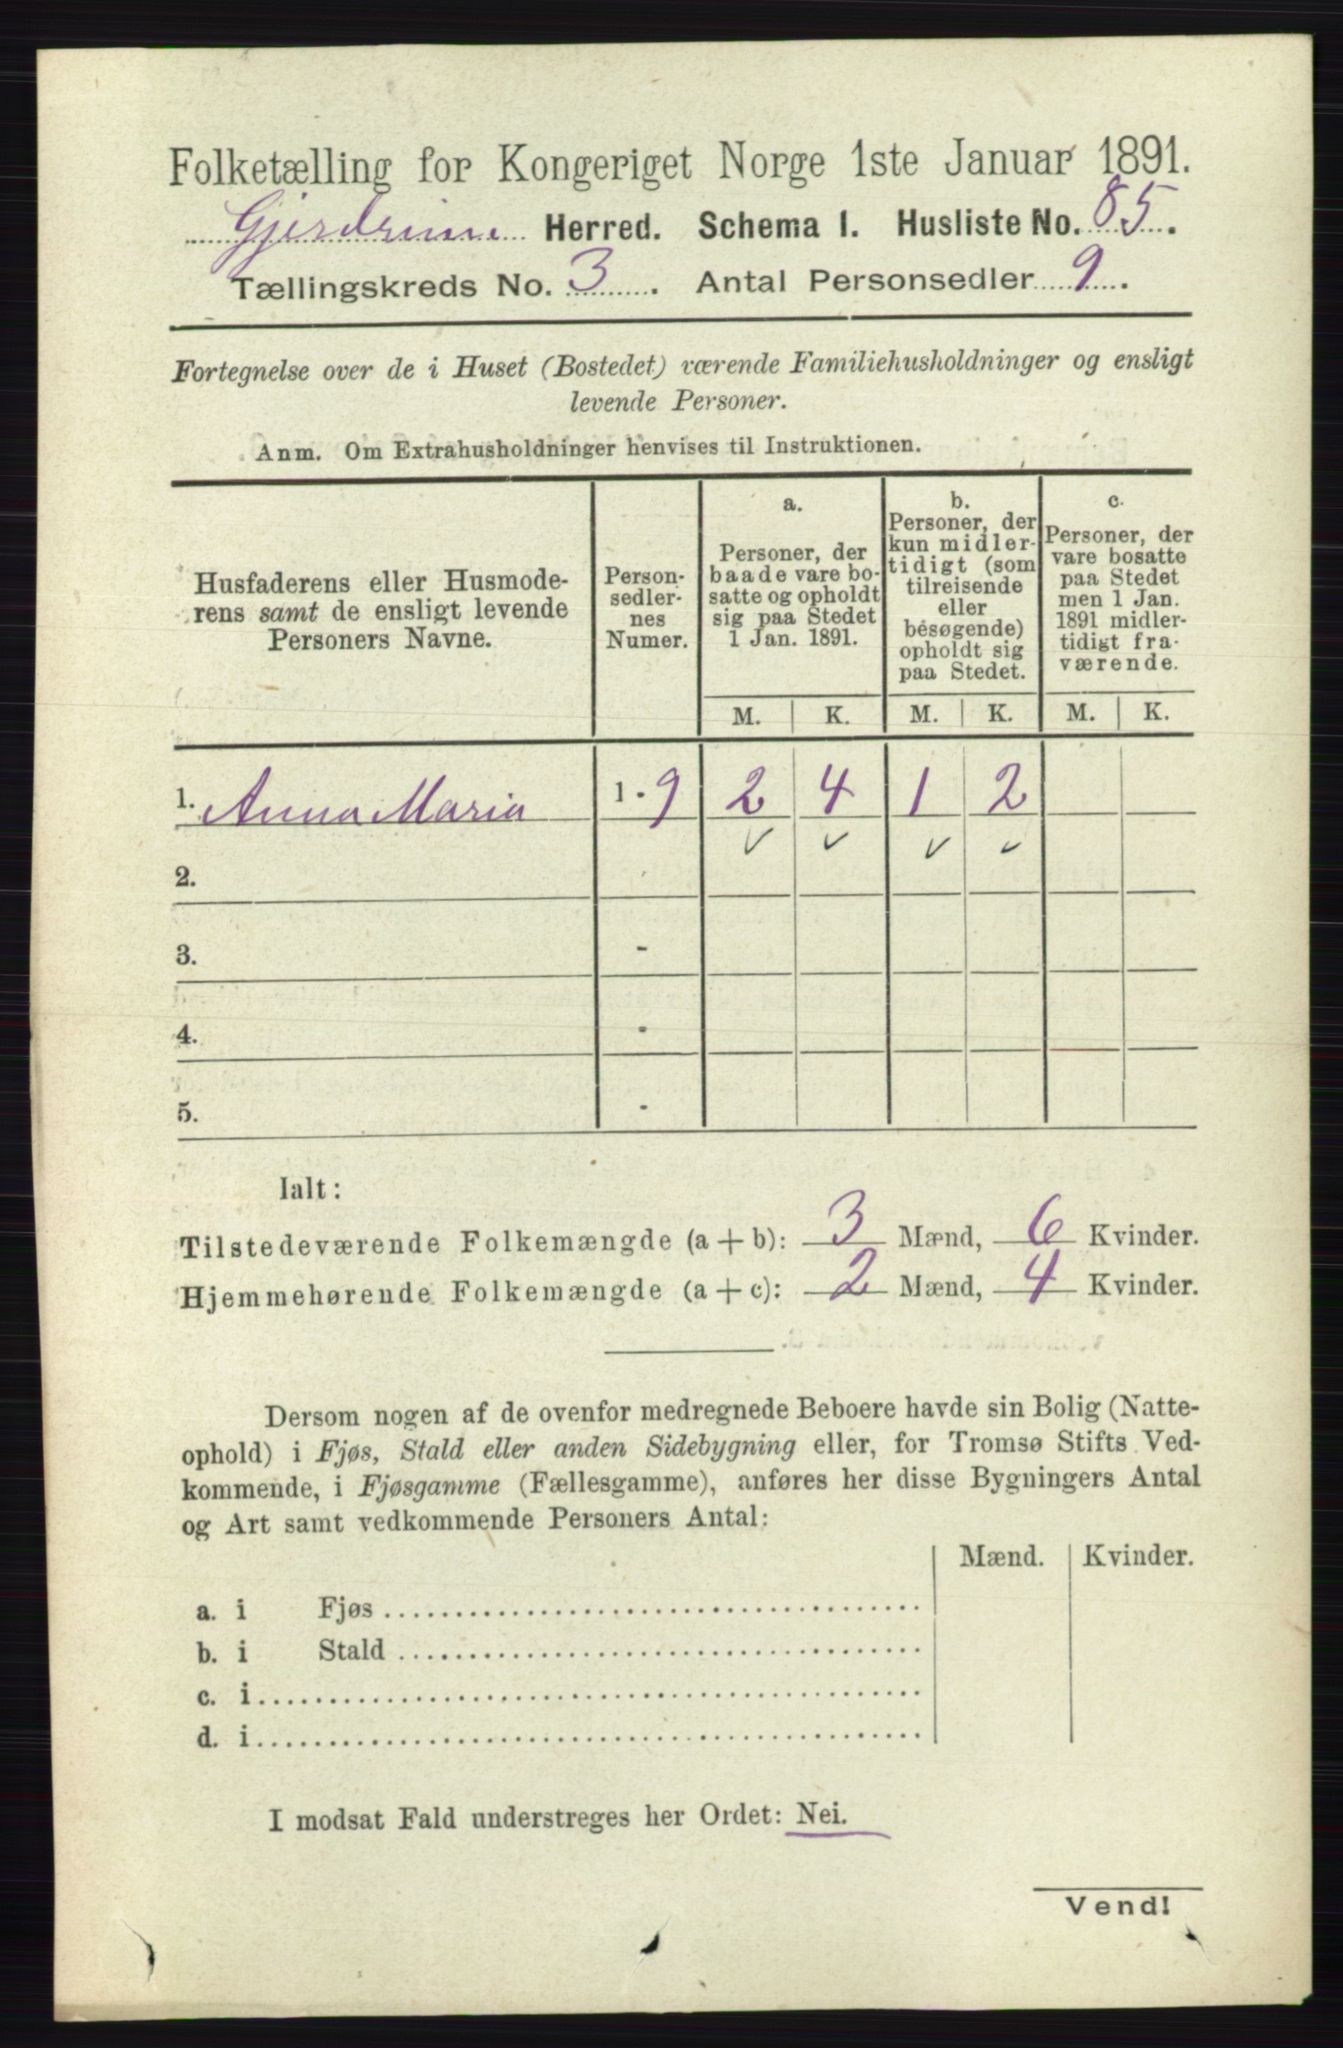 Folketælling for Kongeriget Norge 1ste Januar 1891.
Gjerdrum Herred. Schema I. Husliste No. 85.
Tællingskreds No. 3. Antal Personsedler 9.
Fortegnelse over de i Huset (Bostedet) værende Familiehusholdninger og ensligt
levende Personer.
Anm. Om Extrahusholdninger henvises til Instruktionen.
Husfaderens eller Husmode-
rens samt de ensligt levende
Personers Navne.
Person-
sedler-
nes
Numer.
a.
Personer, der
baade vare bo-
satte og opholdt
sig paa Stedet
1 Jan. 1891.
b.
Personer, der
kun midler-
tidigt (som
tilreisende
eller
besøgende)
opholdt sig
paa Stedet.
c.
Personer, der
vare bosatte
paa Stedet
men 1 Jan.
1891 midler-
tidigt fra-
værende.
M. K. M. K. M. K.
1. Anna Maria 1 - 9 2 4 1 2
2.
3. -
4. -
5. -
Ialt:
Tilstedeværende Folkemængde (a + b): 3 Mænd, 6 Kvinder.
Hjemmehørende Folkemængde (a + c): 2 Mænd, 4 Kvinder.
Dersom nogen af de ovenfor medregnede Beboere havde sin Bolig (Natte-
ophold) i Fjøs, Stald eller anden Sidebygning eller, for Tromsø Stifts Ved-
kommende, i Fjøsgamme (Fællesgamme), anføres her disse Bygningers Antal
og Art samt vedkommende Personers Antal:
Mænd. Kvinder.
a. i Fjøs
b. i Stald
c. i
d. i
I modsat Fald understreges her Ordet: Nei.
Vend!